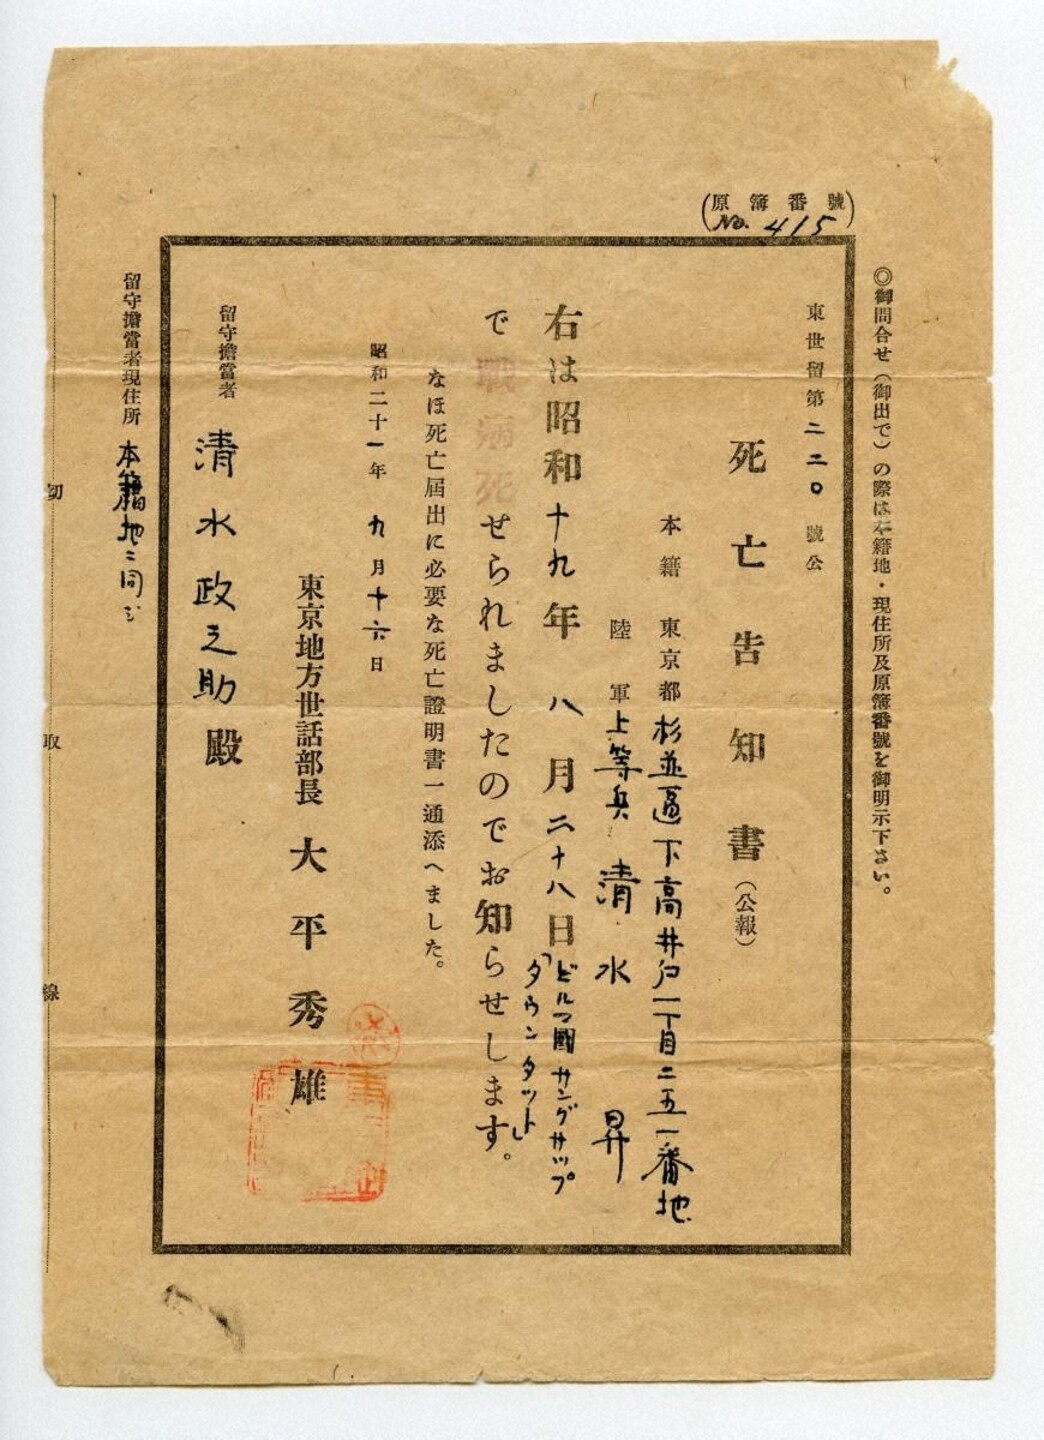 ◎御問合せ（御出で）の際は本籍地・現住所及原簿番號を御明示下さい。
（原簿番號 No. 415）
東世留第二二〇號公
死亡告知書（公報）
本籍 東京都杉並區下高井戸一丁目二五一番地
陸軍上等兵 清水 昇
右は昭和十九年八月二十八日ビルマ國サングサップ
「タウンタット」
で戰病死せられましたのでお知らせします。
なほ死亡屆出に必要な死亡證明書一通添へました。
昭和二十一年九月十六日
東京地方世話部長 大平秀雄
留守擔當者 清水政之助殿
留守擔當者現住所 本籍地ニ同じ
切取線